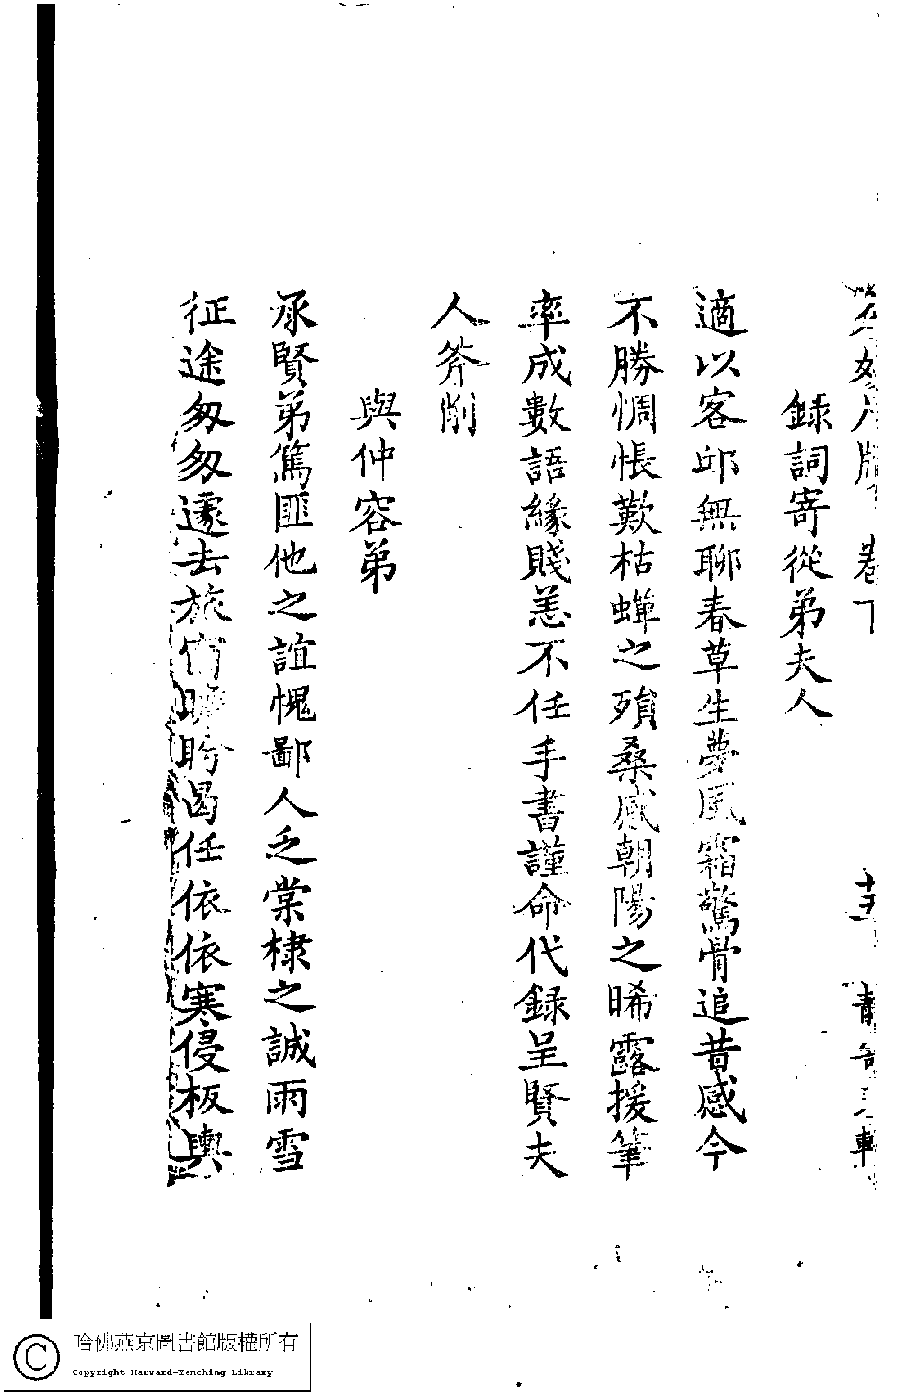 卷下
錄詞寄從弟夫人
適以客邱無聊春草生夢風霜驚骨追昔感今
不勝惆悵歎枯蟬之殞桑感朝陽之晞露援筆
率成數語緣賤恙不任手書謹命代錄呈賢夫
人斧削
與仲容弟
承賢弟篤匪他之誼愧鄙人乏棠棣之誠雨雪
征途匆匆遽去旅 盼曷任依依寒侵板輿
十五
哈佛燕京圖書館版權所有
Copyright Harvard-Yenching Library